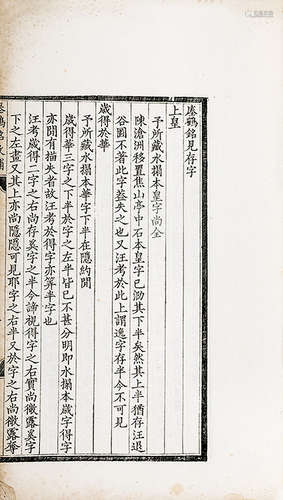 瘞鶴銘見存字
上皇
予所藏水搨本皇字尚全
陳滄洲移置焦山亭中石本皇字已泐其下半矣然其上半猶存汪退
谷圖不著此字葢失之也又汪考於此上謂逸字存半今不可見
歲得於華
予所藏水搨本華字下半在隱約閒
歲得華三字之下半於字之左半皆已不甚分明即水搨本歲字得字
亦閒有描失者故汪考於得字亦算半字也
汪考歲得二字之右尚存奚字之半今諦視得字之右實尚微露奚字
下之左畫又其上亦尚隱隱可見耶字之右半又於字之右尚微露奪